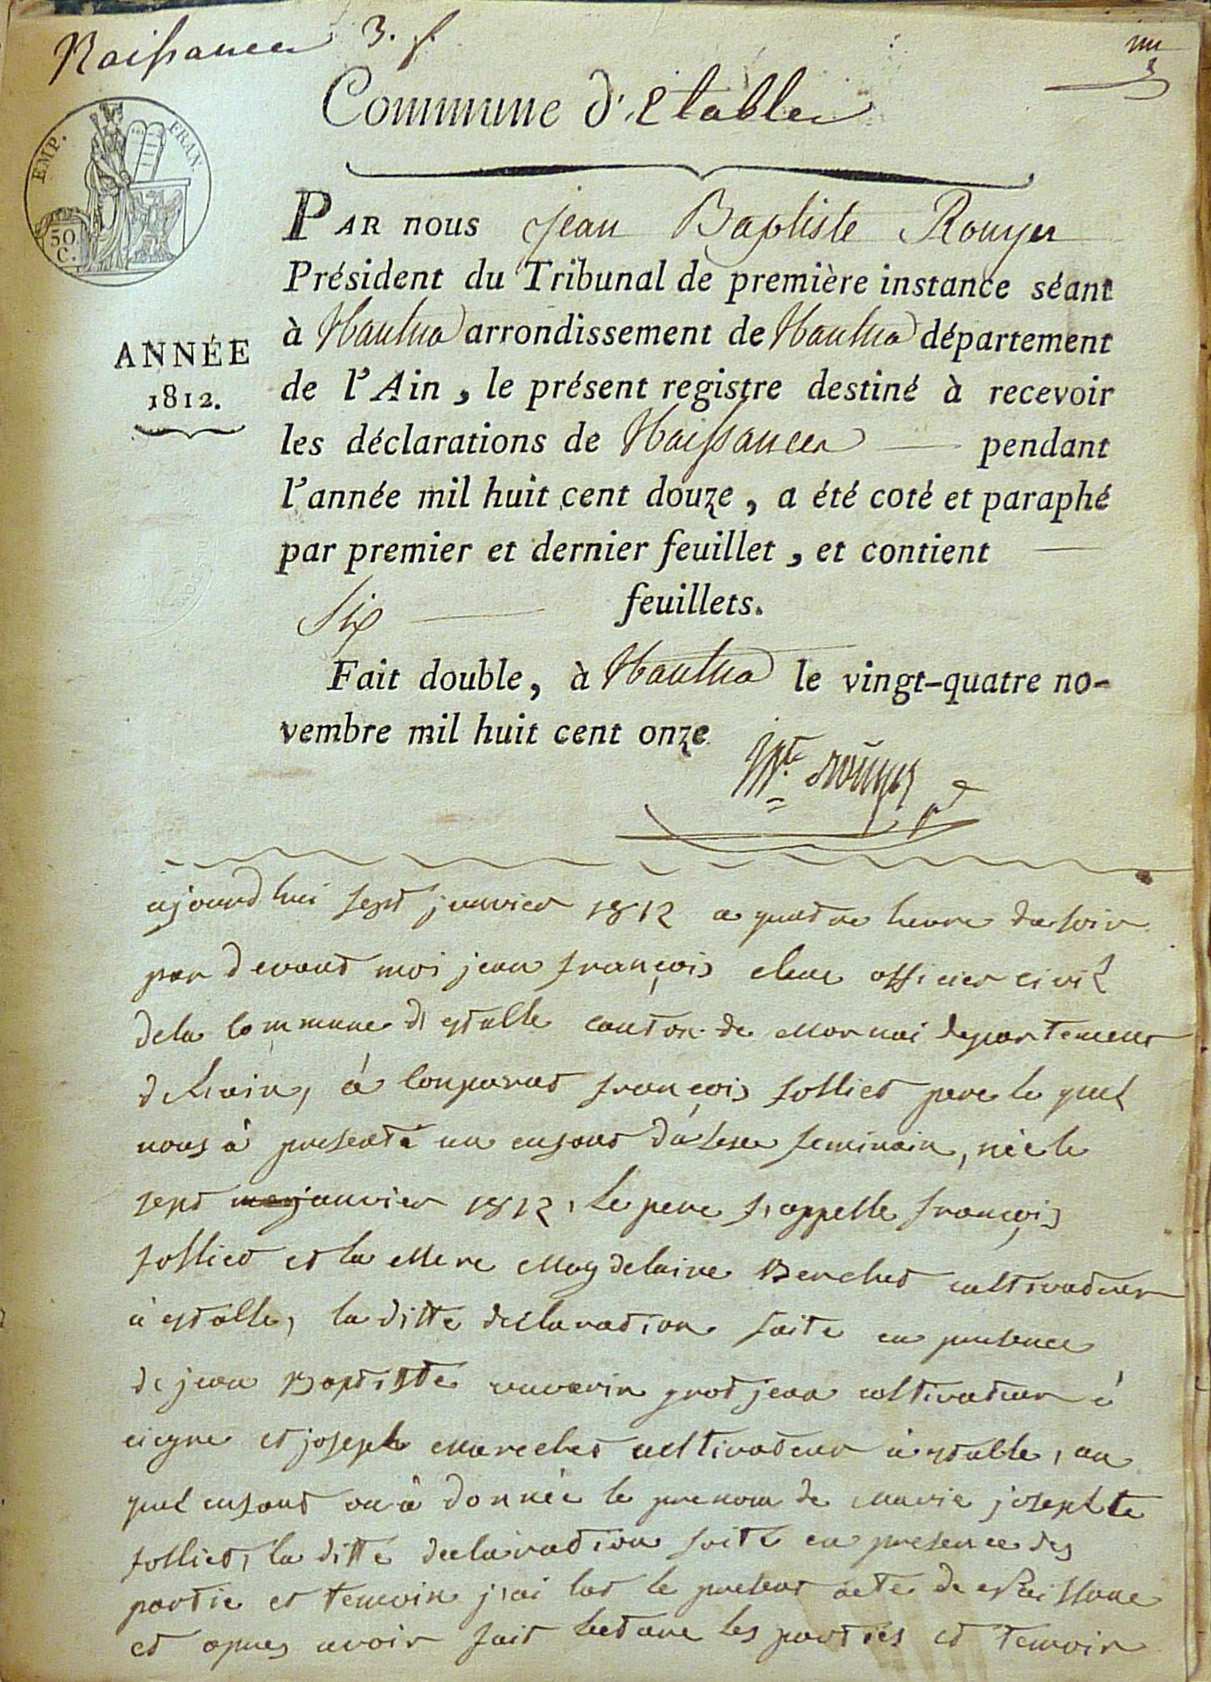 Naissances 3. f.
Commune d'Etables
EMP. FRAN.
50 C.
PAR nous Jean Baptiste Rouyer
Président du Tribunal de première instance séant
à Nantua arrondissement de Nantua département
ANNÉE
1812.
de l'Ain, le présent registre destiné à recevoir
les déclarations de Naissances pendant
l'année mil huit cent douze, a été coté et paraphé
par premier et dernier feuillet, et contient
Six feuillets.
Fait double, à Nantua le vingt-quatre no-
vembre mil huit cent onze
Rouyer
ajourdhui sept janvier 1812 a quatre heure du soir
par devant moi jean françois officier civil
dela Commune d'estable canton de Mornai departement
de l'ain, à Conparut françois folliet pere le quel
nous à presenté un enfant du sexe feminain, née le
sept janvier 1812, le pere s'appelle françois
folliet et la Mere Magdelaine Berchet cultivateur
à estable, la ditte declaration faite en presence
de jean Baptiste grosjean cultivateur à
et joseph Marechet cultivateur à estable, au
quel enfant on à donnée le prenom de Marie josephte
folliet, la ditte declaration faite en presence des
partie et temoin j'ai lut le present acte de Naissance
et apres avoir fait lecture les parties et temoin